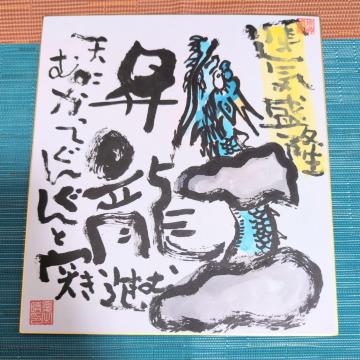 運気盛隆
昇龍
天に
むかってぐんぐんと突き進む